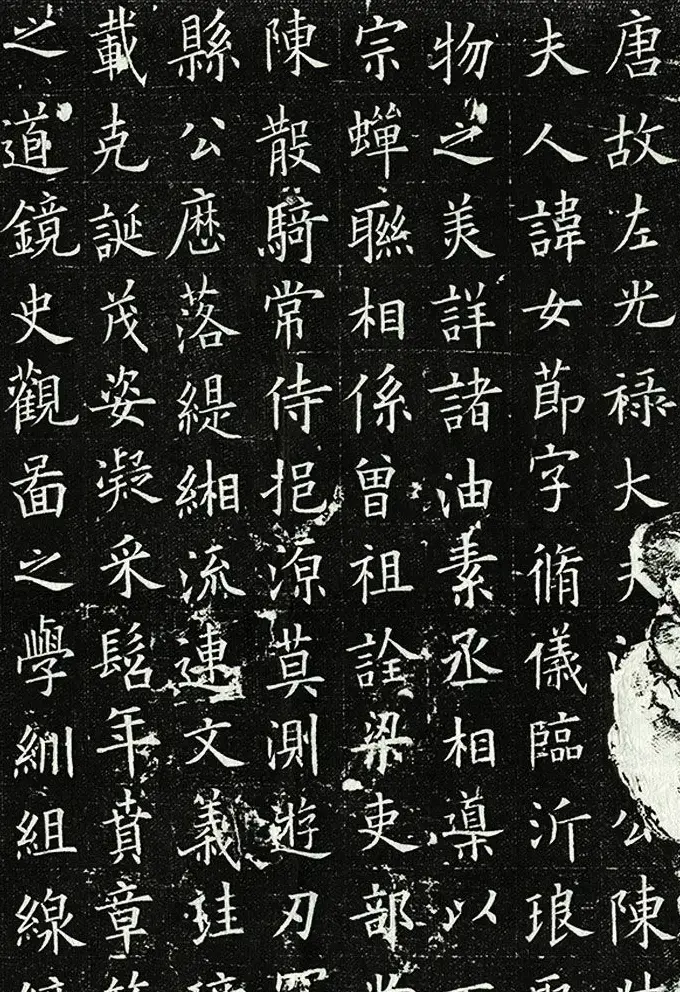 唐故左光禄大夫公陳
夫人諱女節字脩儀臨沂琅
物之美詳諸油素丞相導以
宗蟬聯相係曾祖詮梁吏部
陳散騎常侍挹源莫測遊刃
縣公歷落緹緗流連文義珪
載克誕茂姿凝采髫年賁章
之道鏡史觀啚之學紃組線